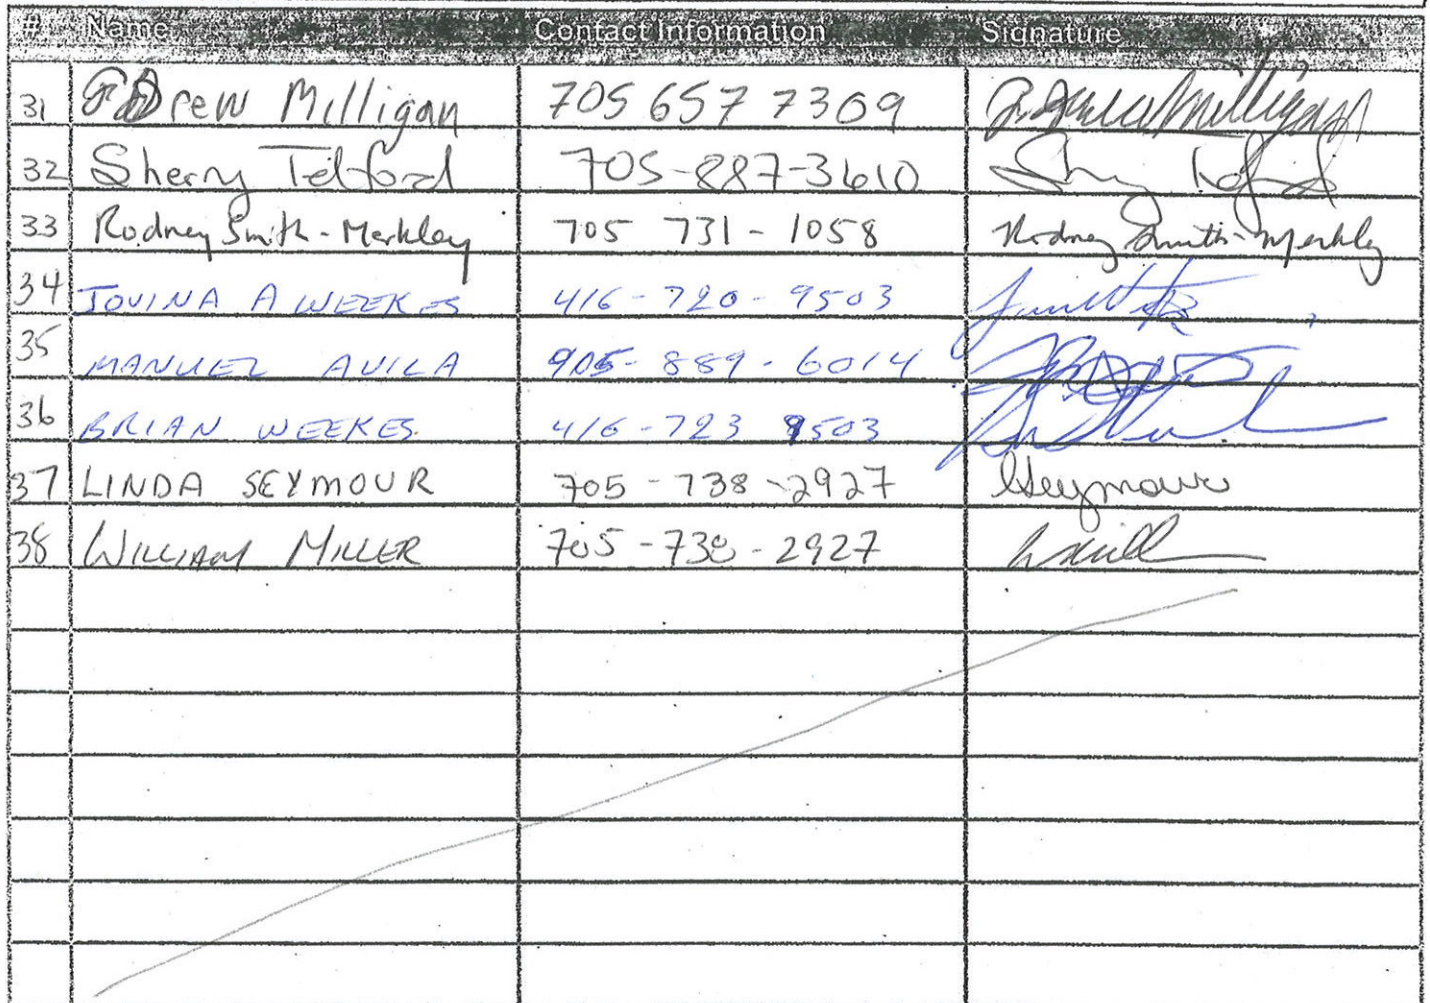 # Name Contact Information Signature
31 F Drew Milligan 705 657 7309 F. Drew Milligan
32 Sherry Telford 705-887-3610
33 Rodney Smith-Merkley 705 731-1058 Rodney Smith-Merkley
34 JOVINA A WEEKES 416-720-9503
35 MANUEL AVILA 905-889-6014
36 BRIAN WEEKES 416-723 9503
37 LINDA SEYMOUR 705-738-2927 LSeymour
38 WILLIAM MILLER 705-738-2927